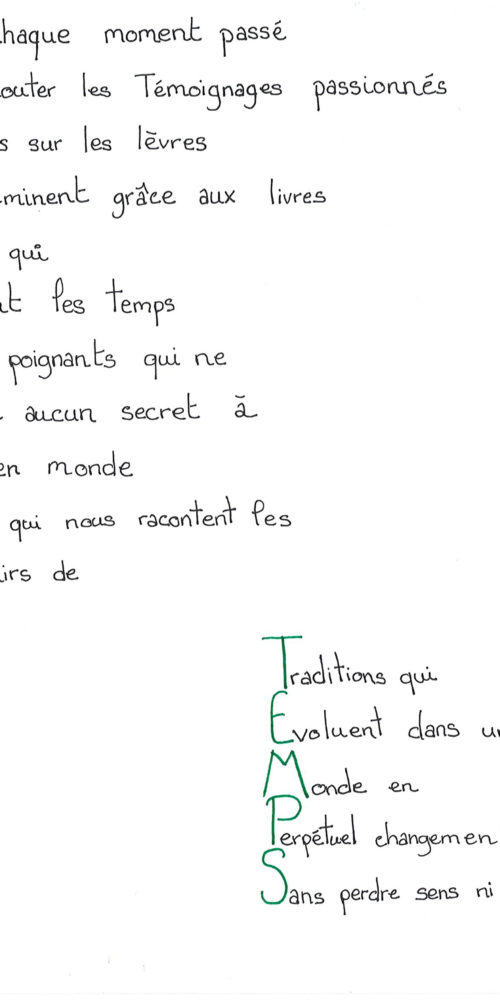 haque moment passé
outer les Témoignages passionnés
s sur les lèvres
minent grâce aux livres
qui
t les temps
poignants qui ne
aucun secret à
en monde
qui nous racontent les
irs de
Traditions qui
Evoluent dans un
Monde en
Perpétuel changemen
Sans perdre sens ni